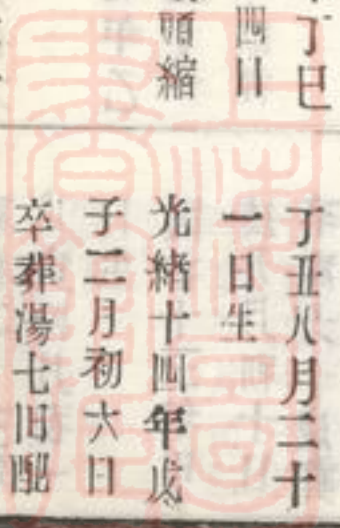 丁巳
四日
頭縮
丁丑八月二十
一日生
光緒十四年戊
子二月初六日
卒葬湯七旧配